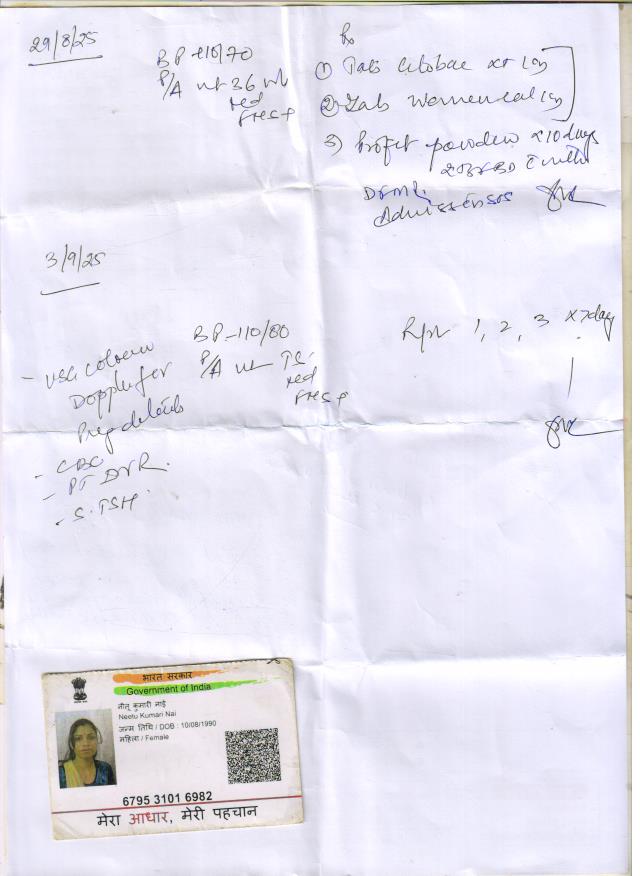 29/8/25
BP-110/70
P/A ut 36 wk
red
FHS +
Rx
① Tab Globac XT 1OD
② Tab Womencal 1OD
3) Profit powder x 10 days
2 TSF BD
Admission SOS
3/9/25
BP-110/80
P/A ut TS.
red
FHS +
Rpt 1, 2, 3 x 7 days
- USG colour
Doppler for
Preg details
- CBC
- PT INR.
- S. TSH.
भारत सरकार
Government of India
नीतू कुमारी नाई
Neetu Kumari Nai
जन्म तिथि / DOB : 10/08/1990
महिला / Female
6795 3101 6982
मेरा आधार, मेरी पहचान